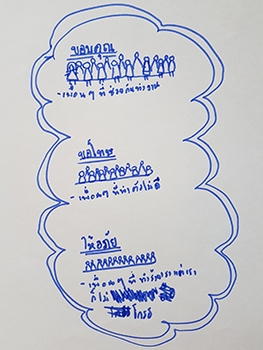 ขอบคุณ
- เพื่อนๆ ที่ช่วยกันทำงาน
ขอโทษ
- เพื่อนๆที่ทำดีไม่ดี
ให้อภัย
- เพื่อนๆ ที่ทำร้ายเราแต่เรา
ก็ไม่
โกรธ